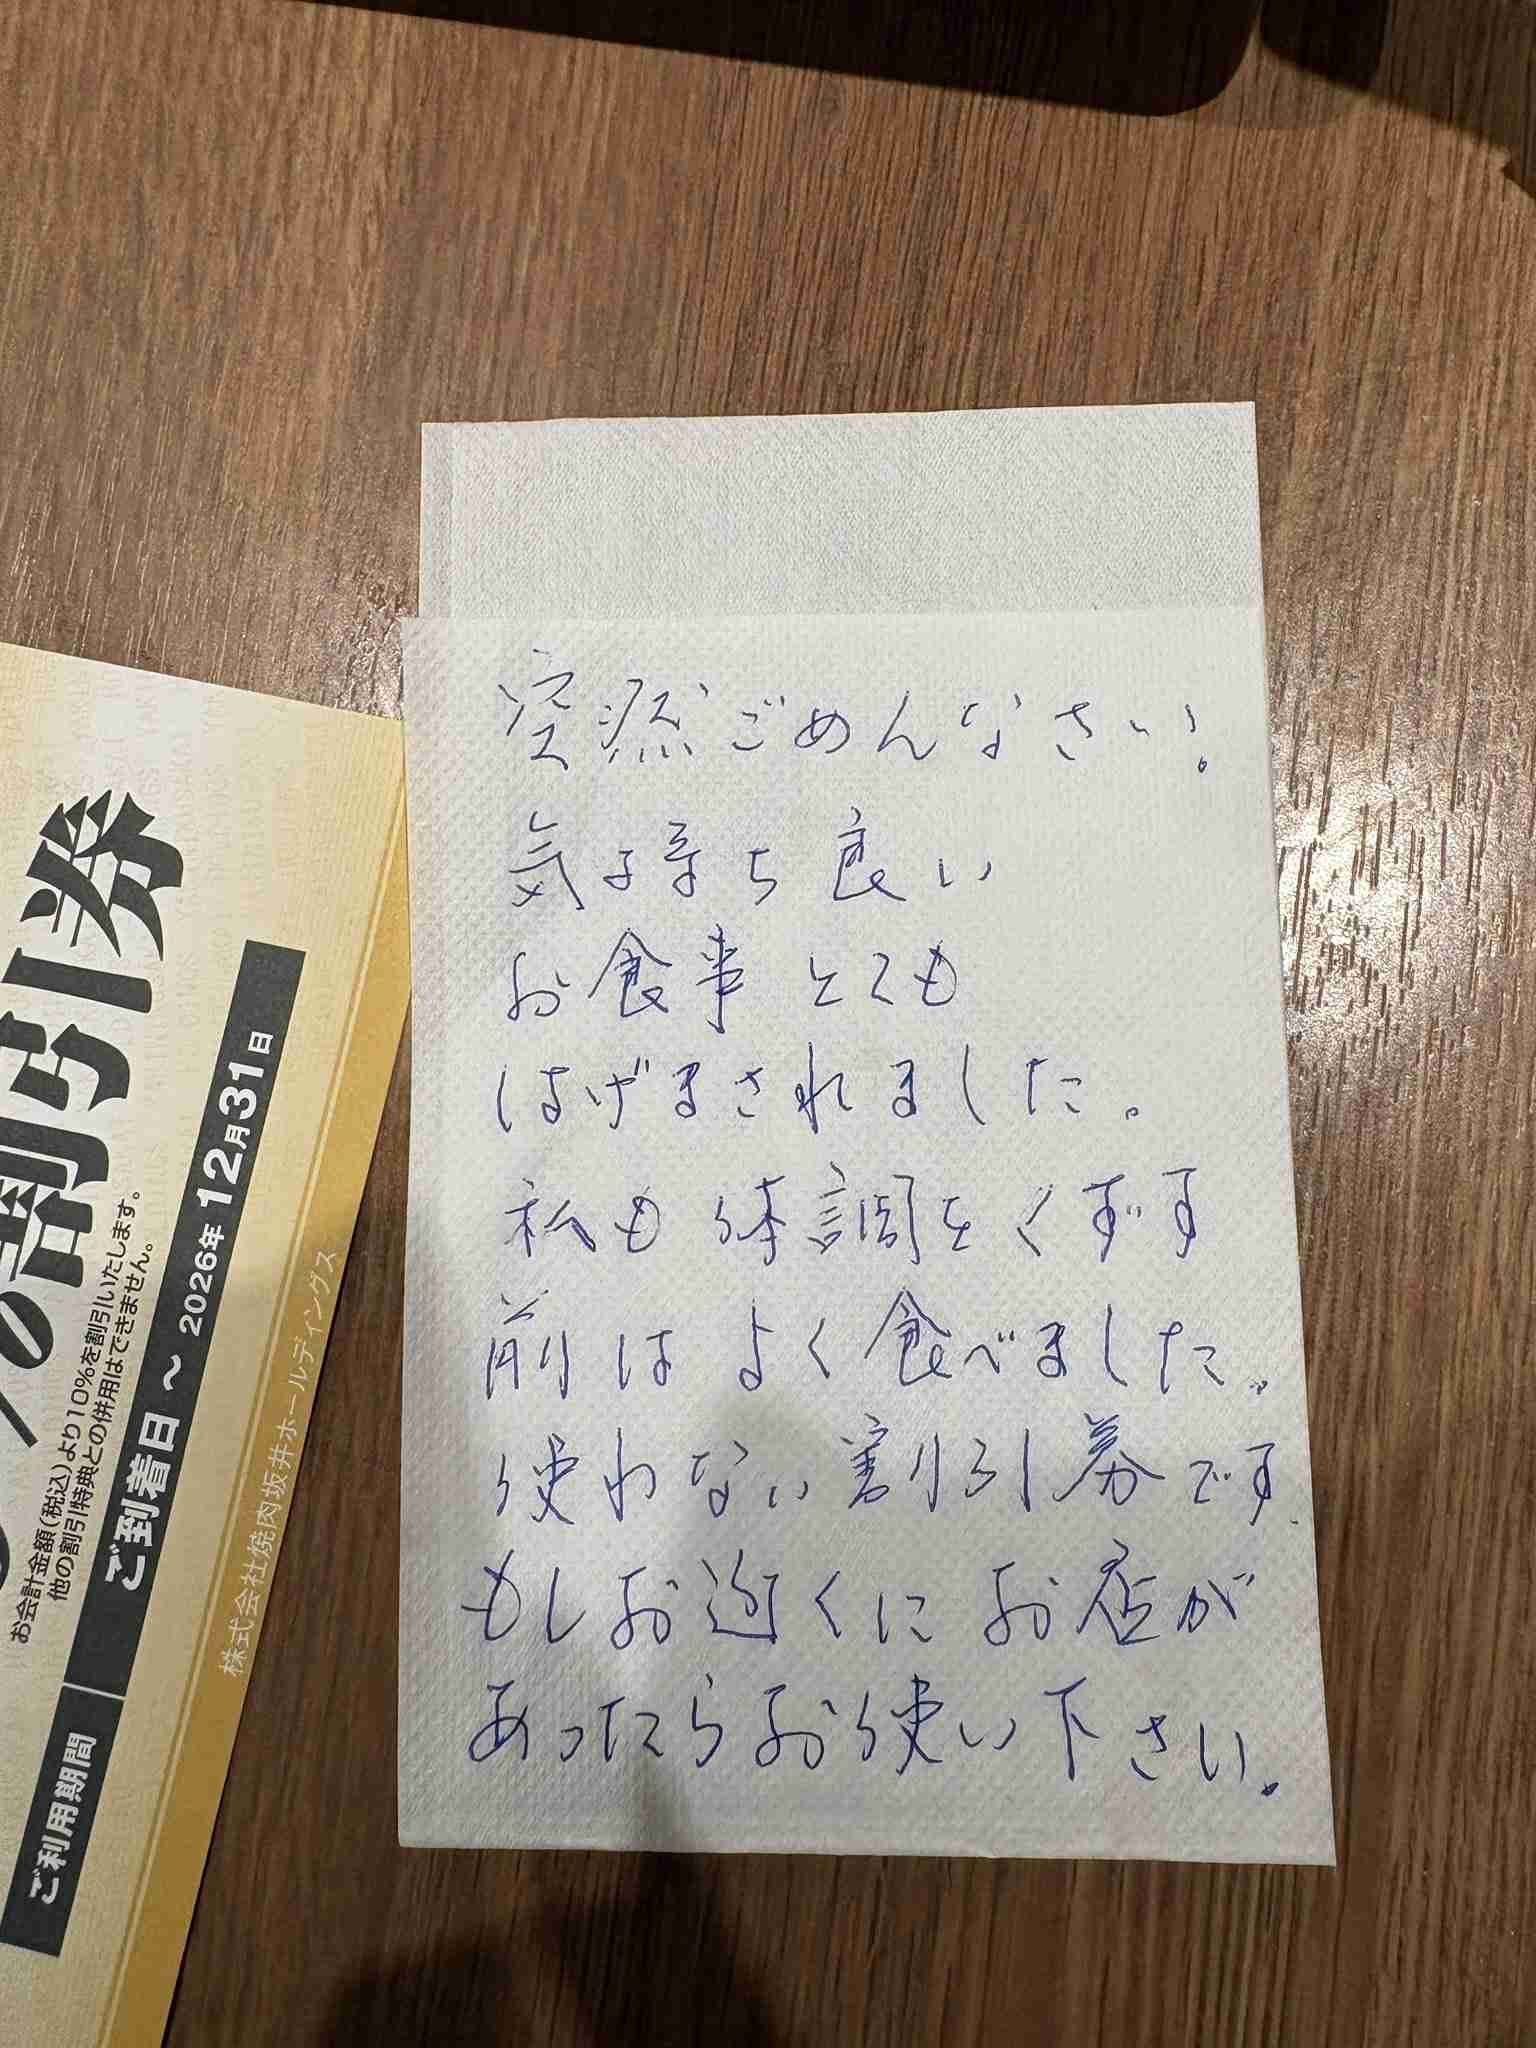 突然ごめんなさい！
気持ち良い
お食事とても
はげまされました。
私も体調をくずす
前はよく食べました。
使わない割引券です
もしお近くにお店が
あったらお使い下さい。
%割引券
お会計金額(税込)より10%を割引いたします。
他の割引特典との併用はできません。
ご利用期間 ご到着日 ～ 2026年12月31日
株式会社焼肉坂井ホールディングス